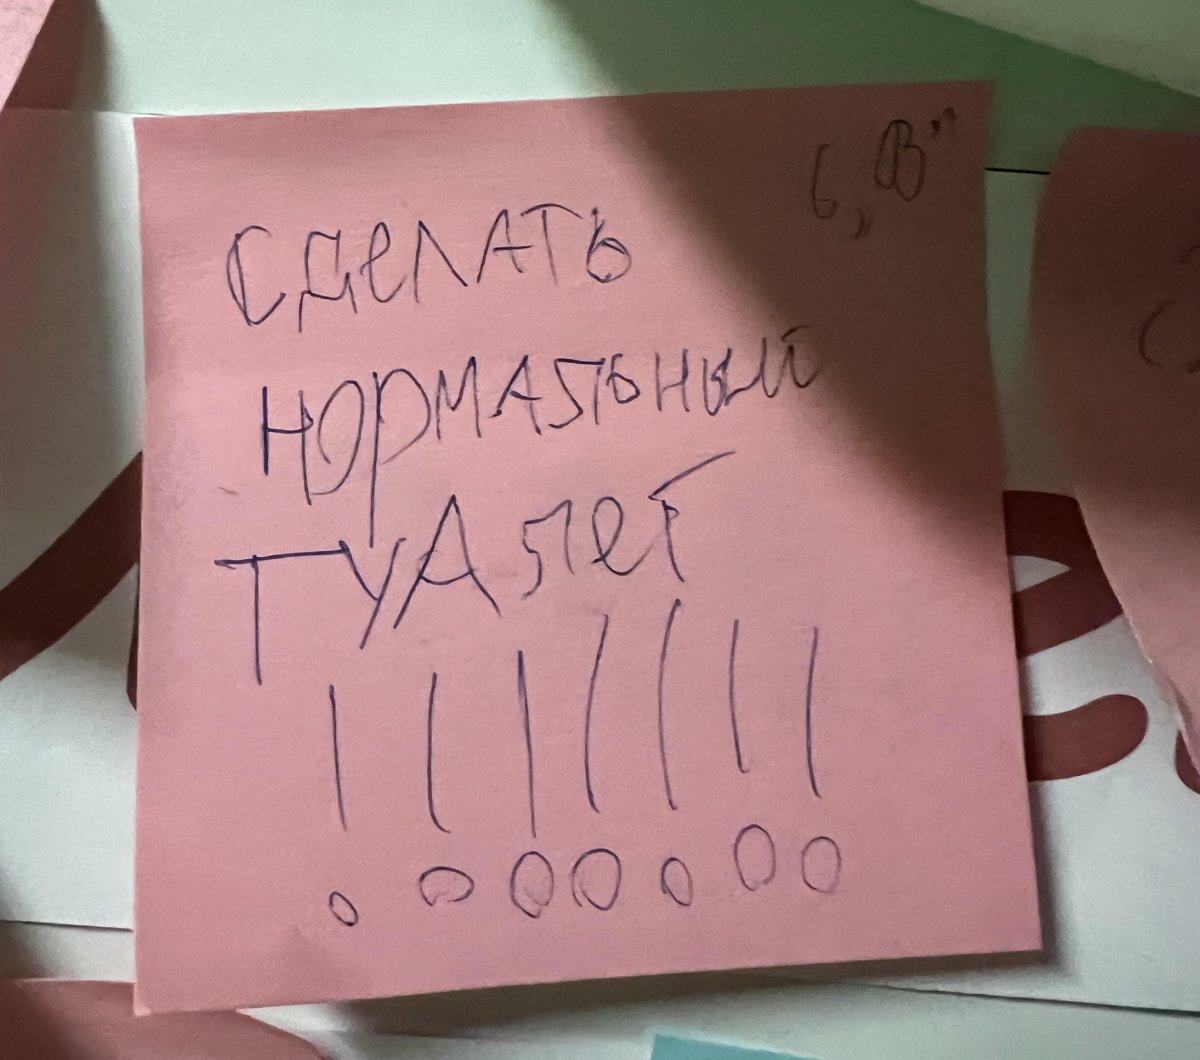 6 „В"
СДеЛАТЬ
НОРМАЛЬНЫЙ
ТУАЛеТ
!!!!!!!